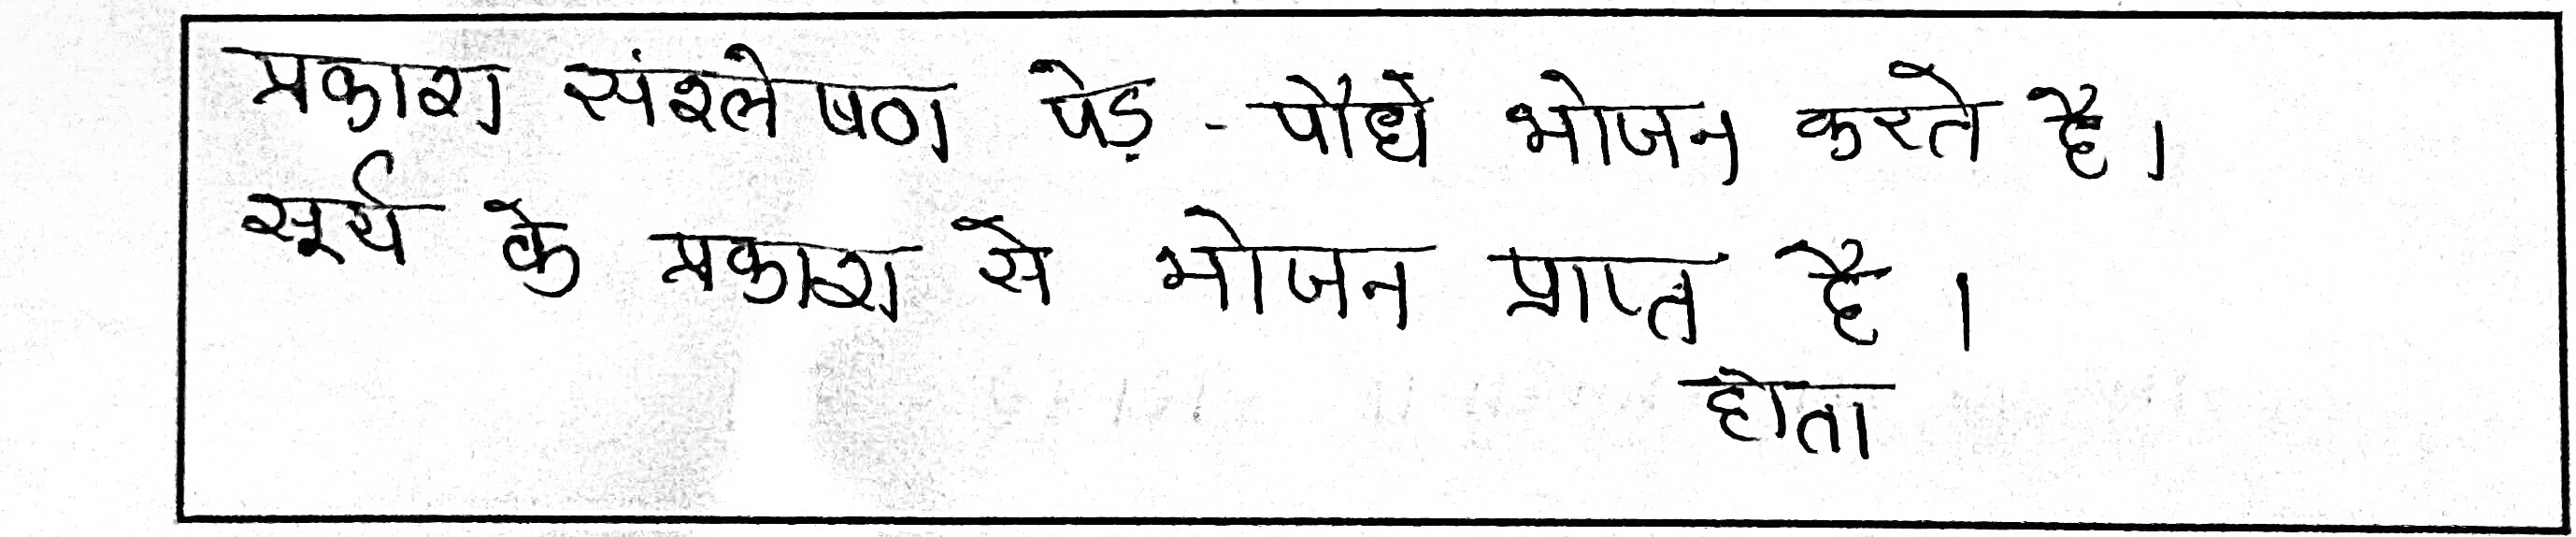 प्रकाश संश्लेषण पेड़ - पौधे भोजन करते है।
सूर्य के प्रकाश से भोजन प्राप्त है।
होता